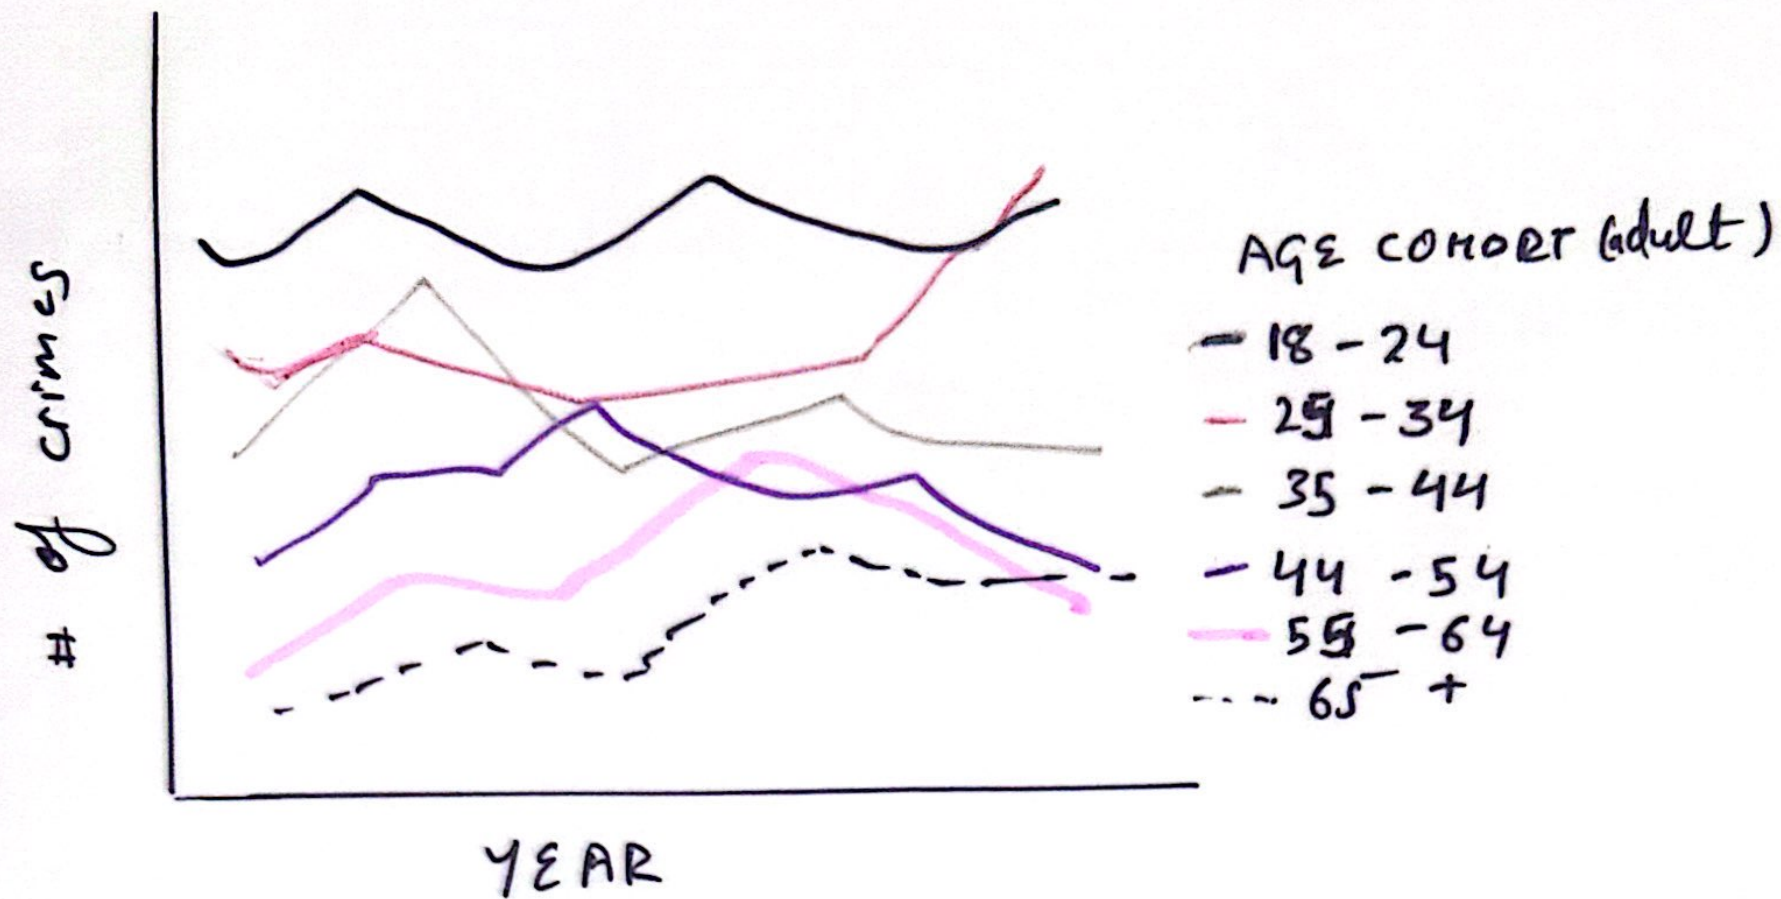 # of crimes
YEAR
AGE COHORT (adult)
18 - 24
25 - 34
35 - 44
44 - 54
55 - 64
65 +